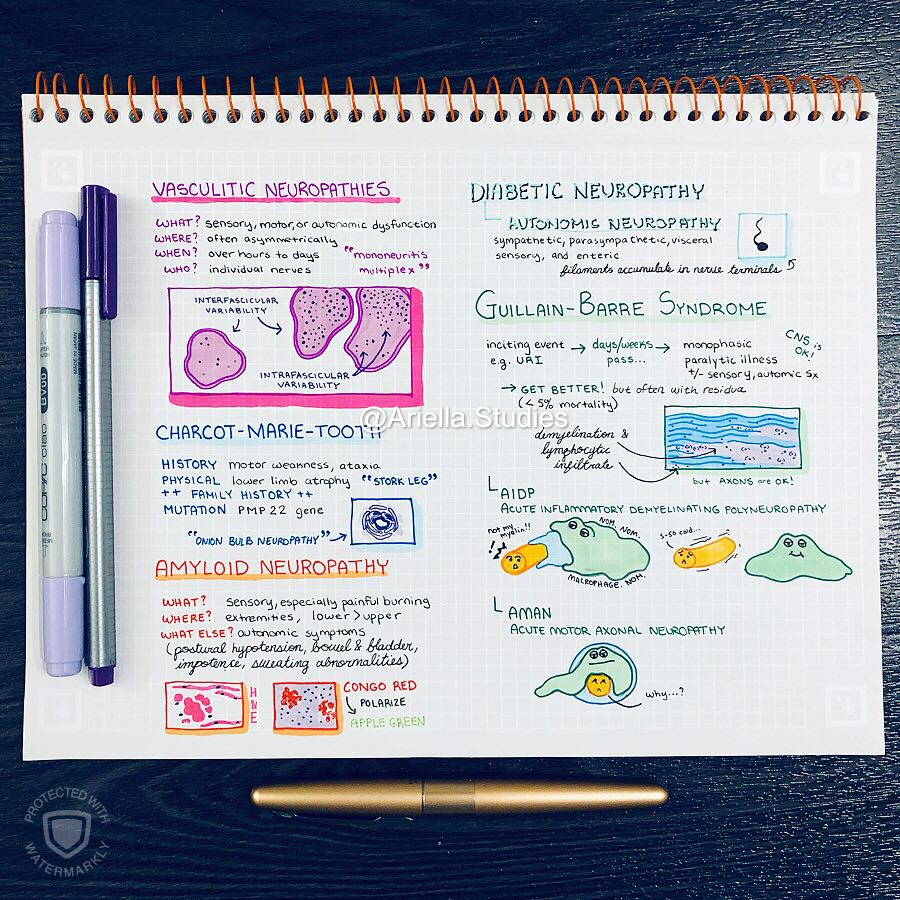 VASCULITIC NEUROPATHIES
WHAT? sensory, motor, or autonomic dysfunction
WHERE? often asymmetrically
WHEN? over hours to days
WHO? individual nerves
"mononeuritis
multiplex"
INTERFASCICULAR
VARIABILITY
INTRAFASCICULAR
VARIABILITY
CHARCOT-MARIE-TOOTH
HISTORY motor weakness, ataxia
PHYSICAL lower limb atrophy "STORK LEG"
++ FAMILY HISTORY ++
MUTATION PMP22 gene
"ONION BULB NEUROPATHY"→
AMYLOID NEUROPATHY
WHAT? Sensory, especially painful burning
WHERE? extremities, lower>upper
WHAT ELSE? autonomic symptoms
(postural hypotension, bowel & bladder,
impotence, sweating abnormalities)
H
E
CONGO RED
POLARIZE
APPLE GREEN
DIABETIC NEUROPATHY
AUTONOMIC NEUROPATHY
sympathetic, parasympathetic, visceral
sensory, and enteric
filaments accumulate in nerve terminals
GUILLAIN-BARRE SYNDROME
inciting event → days/weeks → monophasic
e.g. URI pass... paralytic illness
+/- sensory, automic Sx
CNS is
OK!
→ GET BETTER! but often with residua
(<5% mortality)
@Ariella.Studies
demyelination &
lymphocytic
infiltrate
but AXONS are OK!
AIDP
ACUTE INFLAMMATORY DEMYELINATING POLYNEUROPATHY
not my
myelin!!
NOM, NOM.
MACROPHAGE. NOM.
s-so cold...
AMAN
ACUTE MOTOR AXONAL NEUROPATHY
why...?
COPIC ciao
BV00
PROTECTED WITH
WATERMARKLY